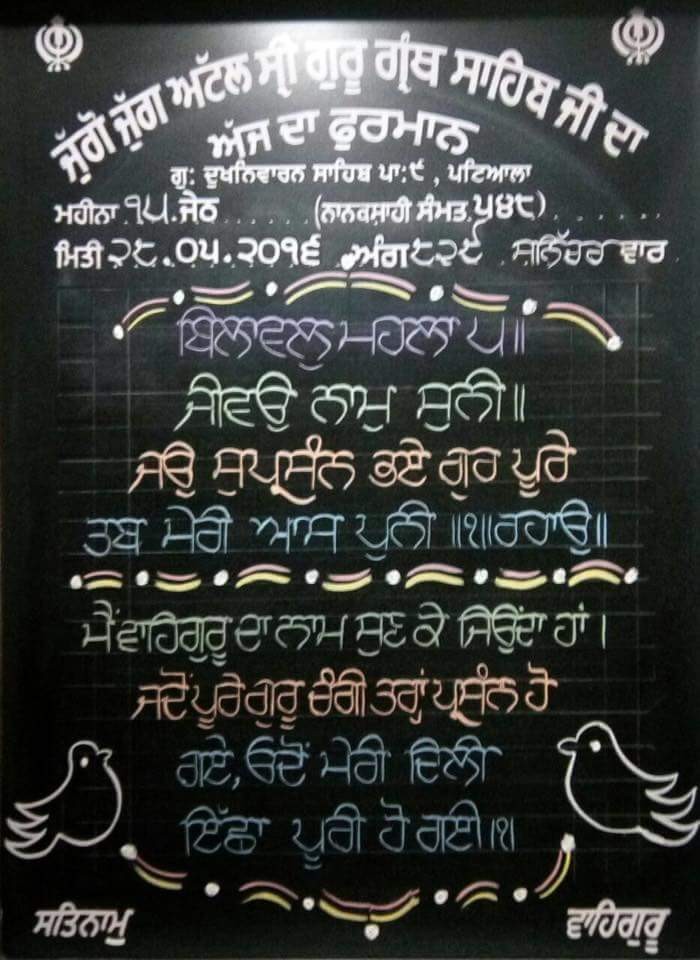 ਜੁੱਗੋ ਜੁੱਗ ਅਟੱਲ ਸ੍ਰੀ ਗੁਰੂ ਗ੍ਰੰਥ ਸਾਹਿਬ ਜੀ ਦਾ
ਅੱਜ ਦਾ ਫੁਰਮਾਨ
ਗੁ: ਦੁਖਨਿਵਾਰਨ ਸਾਹਿਬ ਪਾ:੯, ਪਟਿਆਲਾ
ਮਹੀਨਾ ੧੫.ਜੇਠ......(ਨਾਨਕਸ਼ਾਹੀ ਸੰਮਤ.੫੪੮).......
ਮਿਤੀ ੨੮.੦੫.੨੦੧੬ ਅੰਗ ੮੨੯ ਸ਼ਨਿੱਚਰ ਵਾਰ
ਬਿਲਾਵਲੁ ਮਹਲਾ ੫॥
ਜੀਵਉ ਨਾਮੁ ਸੁਨੀ॥
ਜਉ ਸੁਪ੍ਰਸੰਨ ਭਏ ਗੁਰ ਪੂਰੇ
ਤਬ ਮੇਰੀ ਆਸ ਪੁਨੀ ॥੧॥ਰਹਾਉ॥
ਮੈਂ ਵਾਹਿਗੁਰੂ ਦਾ ਨਾਮ ਸੁਣ ਕੇ ਜਿਉਂਦਾ ਹਾਂ।
ਜਦੋਂ ਪੂਰੇ ਗੁਰੂ ਚੰਗੀ ਤਰ੍ਹਾਂ ਪ੍ਰਸੰਨ ਹੋ
ਗਏ, ਓਦੋਂ ਮੇਰੀ ਦਿਲੀ
ਇੱਛਾ ਪੂਰੀ ਹੋ ਗਈ।੧।
ਸਤਿਨਾਮੁ
ਵਾਹਿਗੁਰੂ